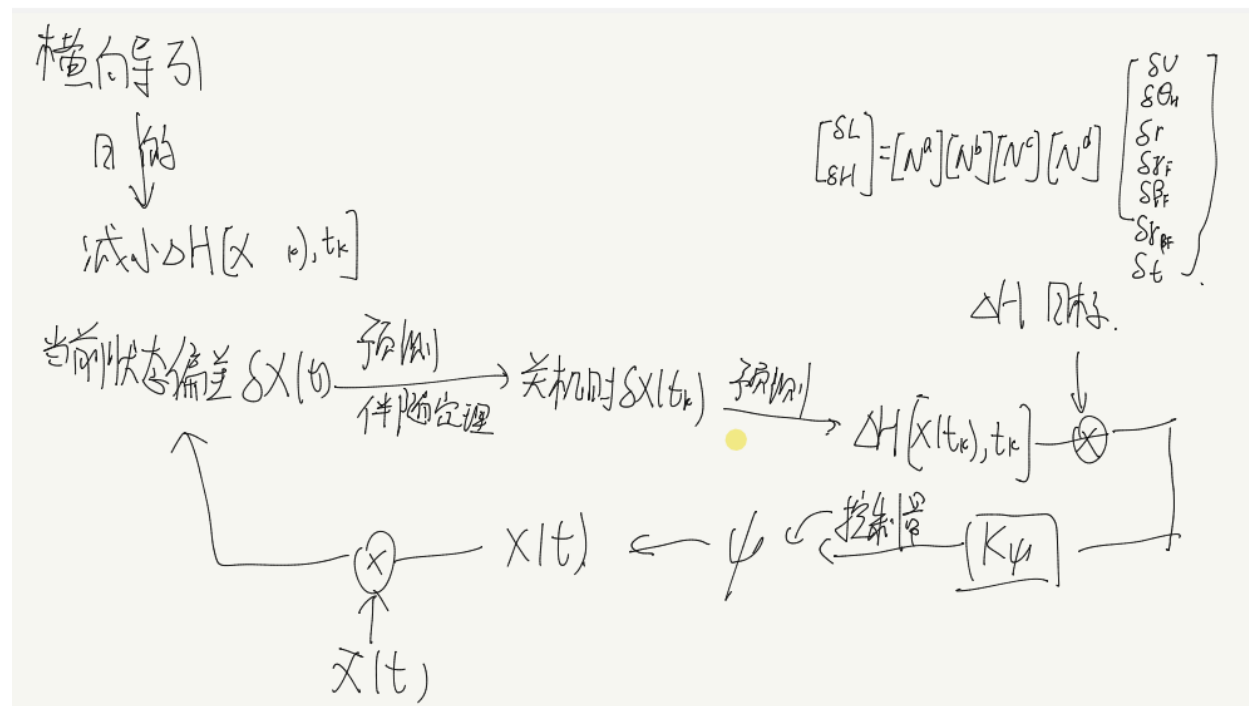 横向导引
目的
减小ΔH[X ),tₖ]
[δL δH] = [Nᵃ][Nᵇ][Nᶜ][Nᵈ]
δU
δθₙ
δr
δγF
δβF
δγβF
δt
ΔH 目标
当前状态偏差 δX(t) 预测 伴随定理 关机时 δX(tₖ) 预测 ΔH[X(tₖ),tₖ] X
X X(t) ψ 控制量 Kψ
X̄(t)